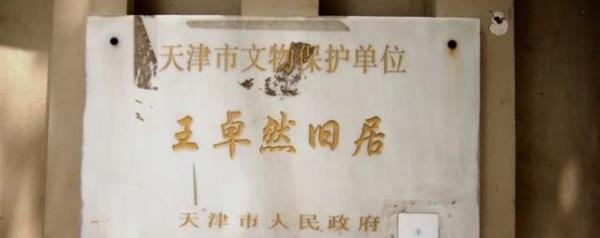 天津市文物保护单位
王卓然旧居
天津市人民政府